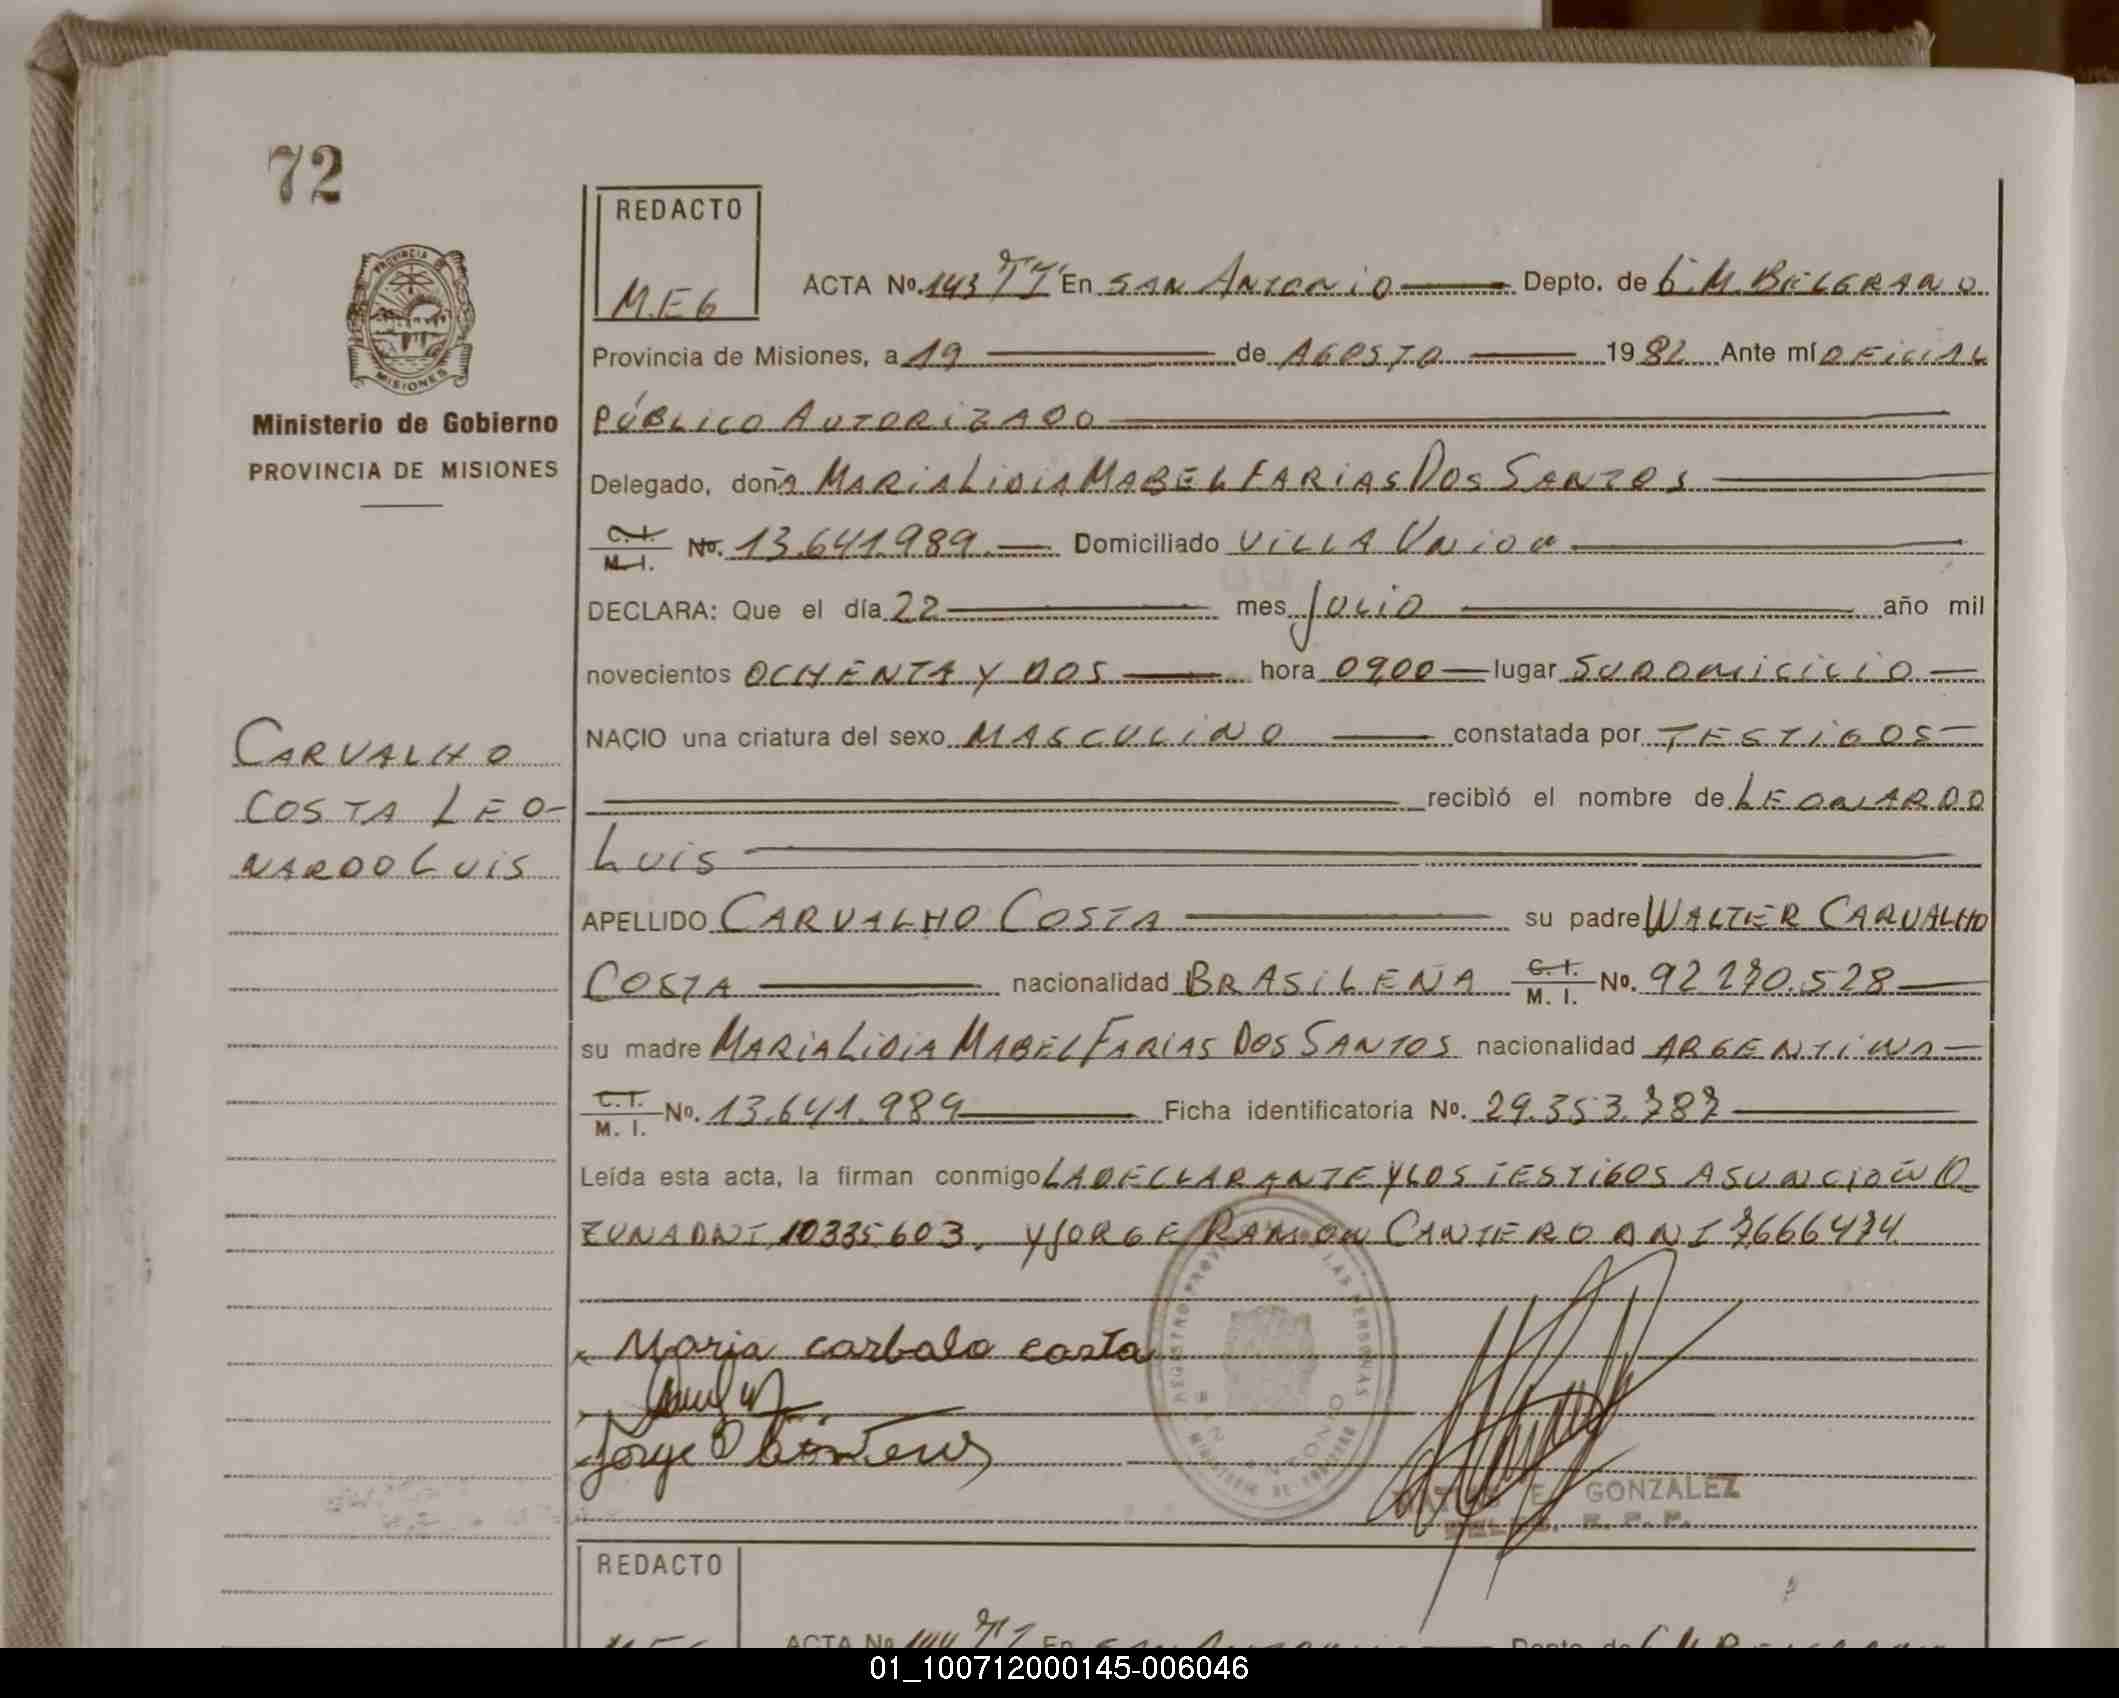 72
REDACTO
M.E G
PROVINCIA DE
MISIONES
Ministerio de Gobierno
PROVINCIA DE MISIONES
ACTA Nº 143 TI En SAN ANTONIO Depto. de G.M. BELGRANO
Provincia de Misiones, a 19 de AGOSTO 1982 Ante mí OFICIAL
PÚBLICO AUTORIZADO
Delegado, doña MARIA LIDIA MABEL FARIAS DOS SANTOS
C.I. M.I. No. 13.641.989 Domiciliado VILLA UNION
DECLARA: Que el día 22 mes JULIO año mil
novecientos OCHENTA Y DOS hora 0900 lugar SU DOMICILIO
NACIO una criatura del sexo MASCULINO constatada por TESTIGOS
recibió el nombre de LEONARDO
LUIS
CARVALHO
COSTA LEO-
NARDO LUIS
APELLIDO CARVALHO COSTA su padre WALTER CARVALHO
COSTA nacionalidad BRASILEÑA C.I. M.I. Nº. 92270.528
su madre MARIA LIDIA MABEL FARIAS DOS SANTOS nacionalidad ARGENTINA
C.I. M.I. Nº. 13.641.989 Ficha identificatoria Nº. 29.353.787
Leída esta acta, la firman conmigo LA DECLARANTE Y LOS TESTIGOS ASUNCION O
ZUNA DNI 10335603. Y JORGE RAMON CANTERO DNI 7666474
Maria carbalo costa
Jorge
SAN ANTONIO
E. GONZALEZ
REDACTO
ACTA Nº 144 TI En SAN ANTONIO Depto. de G.M. BELGRANO
01_100712000145-006046